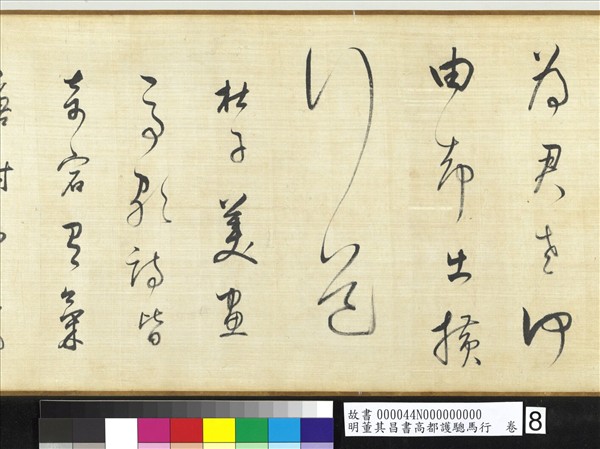 為君老何
由却出橫
門道
杜子美畫
馬歌詩皆
奇宕有氣
故書 000044N000000000
明董其昌書高都護驄馬行 卷 8